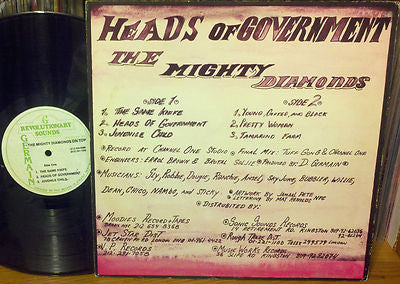 HEADS OF GOVERNMENT
THE
MIGHTY
DIAMONDS
SIDE 1
1. THE SAME KNIFE
2. HEADS OF GOVERNMENT
3. JUVENILE CHILD
SIDE 2
1. YOUNG, GIFTED, AND BLACK
2. PESTY WOMAN
3. TAMARIND FARM
RECORDED AT CHANNEL ONE STUDIO FINAL MIX: TUFF GONG & CHANNEL ONE
ENGINEERS: ERROL BROWN & BRUTAL SOLJIE PRODUCED BY D. GERMAIN
MUSICIANS: SLY, ROBBIE, DOUGIE, RANCHIE, ANSEL, SKY JUICE, BUBBLER, WILLIE,
DEAN, CHICO, NAMBO, AND STICKY
ARTWORK BY JAMAAL PETE
LETTERING BY
DISTRUBITED BY:
MOODIES RECORD & TAPES
BRONX NY 212 659 8368
JET STAR DIST
LONDON NW10 01-961 4422
V.P. RECORDS
212-291-7058
SONIC SOUNDS RECORDS
14 RETIREMENT RD. KINGSTON
ROUGH TRADE DIST.
LONDON
MUSIC WORKS RECORDS
56 SLIPE RD KINGSTON
REVOLUTIONARY
SOUNDS
GERMAIN
THE MIGHTY DIAMONDS ON TOP
1. THE SAME KNIFE
2. HEADS OF GOVERNMENT
3. JUVENILE CHILD